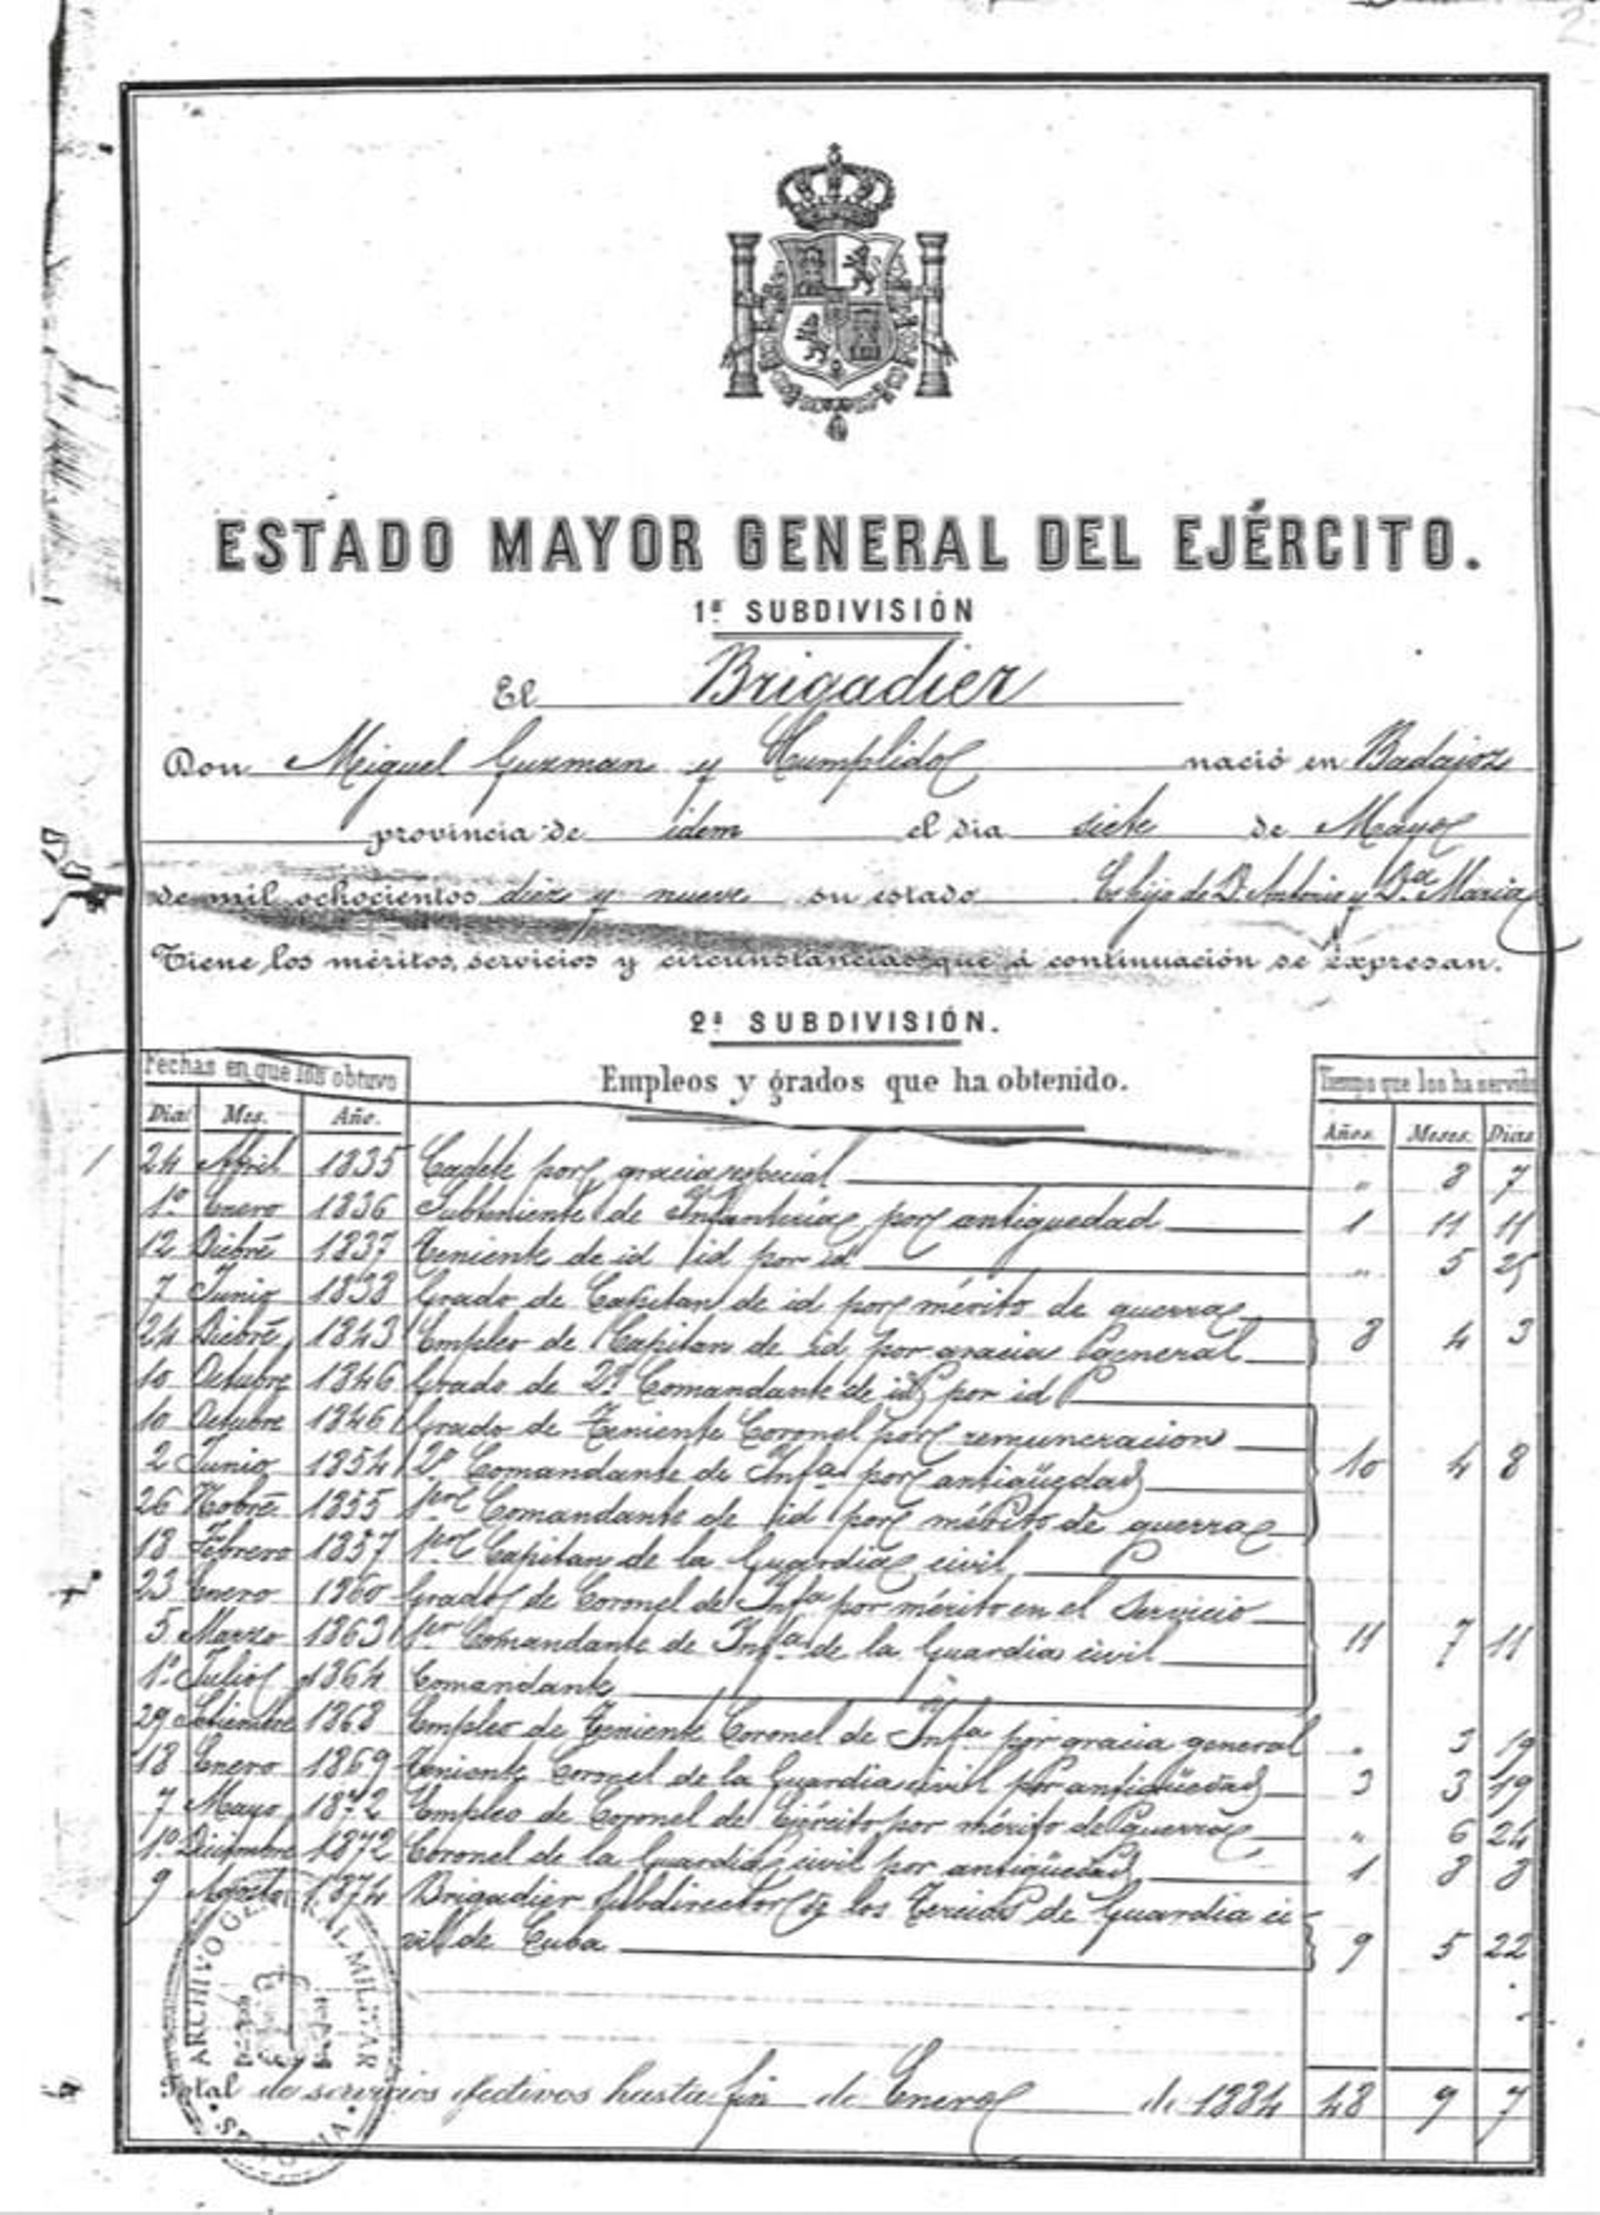 ESTADO MAYOR GENERAL DEL EJÉRCITO.
1ª SUBDIVISIÓN
El Brigadier
Don Miguel Guzman y Cumplido nació en Badajoz
provincia de idem el dia siete de Mayo
de mil ochocientos diez y nueve su estado Es hijo de D. Antonio y Dª Maria
Tiene los méritos, servicios y circunstancias que á continuación se expresan.
2ª SUBDIVISIÓN.
Fechas en que los obtuvo Empleos y grados que ha obtenido. Tiempo que los ha servido
Dia Mes. Año. Años. Meses. Dias
24 Abril 1835 Cadete por gracia especial " 8 7
1º Enero 1836 Subteniente de Infanteria por antiguedad 1 11 11
12 Dicbrē 1837 Teniente de id id por id " 5 25
7 Junio 1838 Grado de Capitan de id por mérito de guerra
24 Dicbrē 1843 Empleo de Capitan de id por gracia general 8 4 3
10 Octubre 1846 Grado de 2º Comandante de id por id
10 Octubre 1846 Grado de Teniente Coronel por remuneracion
2 Junio 1854 2º Comandante de Infª por antigüedad 10 4 8
26 Nobrē 1855 1er Comandante de id por mérito de guerra
18 Febrero 1857 1er Capitan de la Guardia civil
23 Enero 1860 Grado de Coronel de Infª por mérito en el Servicio
5 Marzo 1863 1er Comandante de Infª de la Guardia civil 11 7 11
1º Julio 1864 Comandante
29 Setiembre 1868 Empleo de Teniente Coronel de Infª por gracia general " 3 19
18 Enero 1869 Teniente Coronel de la Guardia civil por antigüedad 3 3 19
7 Mayo 1872 Empleo de Coronel de Ejército por mérito de guerra " 6 24
1º Diciembre 1872 Coronel de la Guardia civil por antigüedad 1 8 8
9 Agosto 1874 Brigadier Subdirector de los Tercios de Guardia ci-
vil de Cuba 9 5 22
ARCHIVO GENERAL MILITAR
SEGOVIA
Total de servicios efectivos hasta fin de Enero de 1884 48 9 7